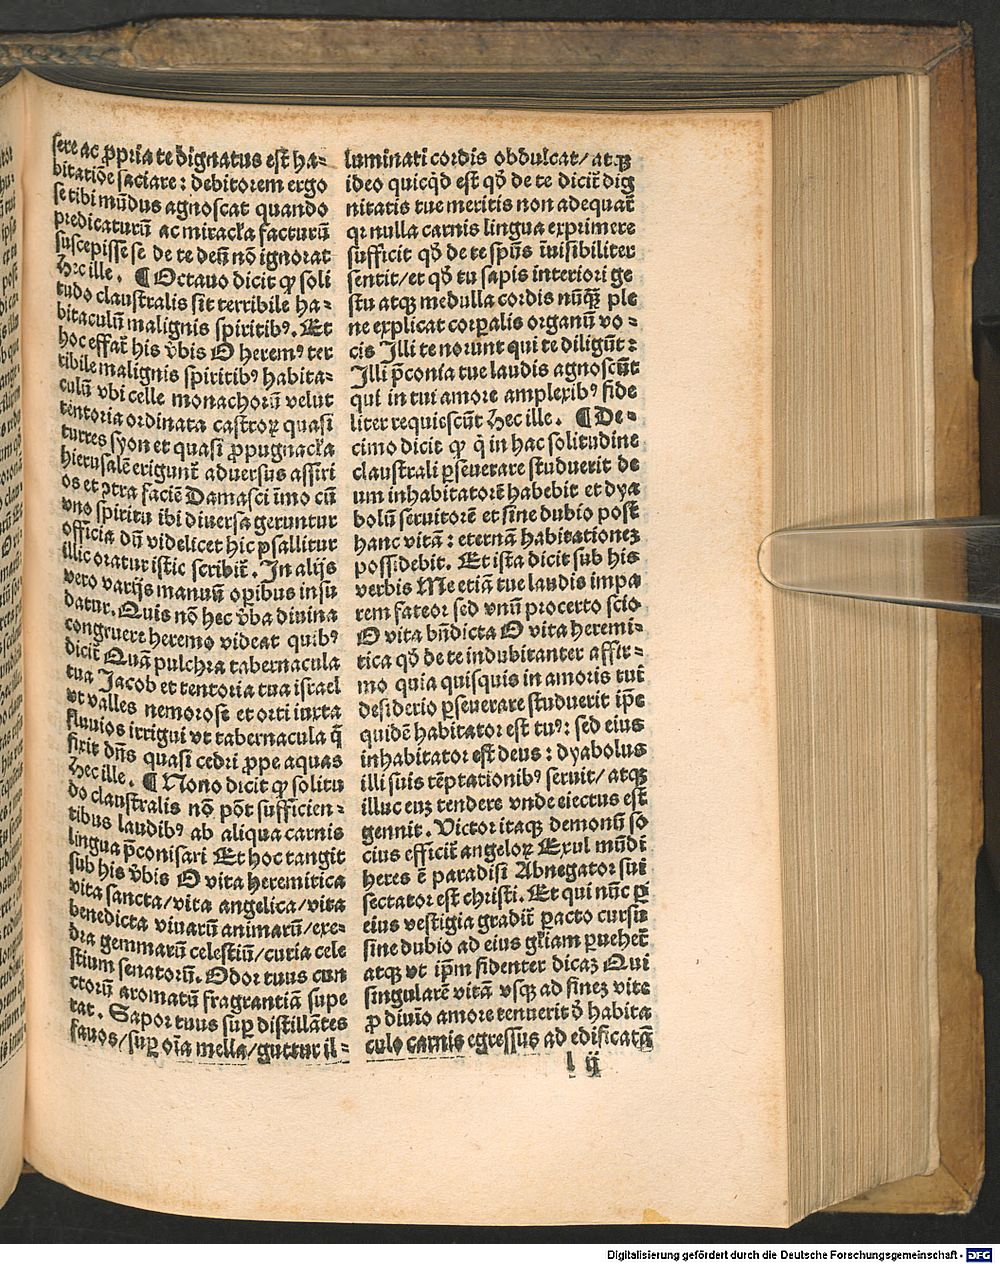 sere ac ꝓpria te dignatus est ha⸗
bitatiõe saciare: debitorem ergo
se tibi mũdus agnoscat quando
predicaturũ ac miracla facturũ
suscepisse se de te deũ nõ ignorat
Hec ille. ¶ Octauo dicit ꝙ soli
tudo claustralis sit terribile ha⸗
bitaculũ malignis spiritibꝰ. Et
hoc effat̃ his v̾bis O heremꝰ ter
ribile malignis spiritibꝰ habita⸗
culũ vbi celle monachorũ velut
tentoria ordinata castroꝝ quasi
turres syon et quasi ꝓpugnacla
hierusalẽ erigunt̃ aduersus assiri
os et ꝯtra faciẽ Damasci ĩmo cũ
vno spiritu ibi diuersa geruntur
officia dũ videlicet hic psallitur
illic oratur istic scribit̃. In alijs
vero varijs manuũ opibus insu
datur. Quis nõ hec v̾ba diuina
congruere heremo videat quibꝰ
dicit̃ Quã pulchra tabernacula
tua Jacob et tentoria tua israel
vt valles nemorose et orti iuxta
fluuios irrigui vt tabernacula q̃
fixit dñs quasi cedri ꝓpe aquas
Hec ille. ¶ Nono dicit ꝙ solitu
do claustralis nõ põt sufficien⸗
tibus laudibꝰ ab aliqua carnis
lingua p̃conisari Et hoc tangit
sub his v̾bis O vita heremitica
vita sancta/vita angelica/vita
benedicta viuarũ animarũ/exe⸗
dra gemmarũ celestiũ/curia cele
stium senatorũ. Odor tuus cun
ctorũ aromatũ fragrantiã supe
rat. Sapor tuus suꝑ distillãtes
fauos/suꝑ oĩa mella/guttur il⸗
luminati cordis obdulcat/atqꝫ
ideo quicq̃d est qð de te dicit̃ dig
nitatis tue meritis non adequat̃
qꝛ nulla carnis lingua exprimere
sufficit qð de te spũs ĩuisibiliter
sentit/et qð tu sapis interiori ge
stu atqꝫ medulla cordis nũq̃ꝫ ple
ne explicat corꝑalis organũ vo⸗
cis Illi te norunt qui te diligũt:
Illi p̃conia tue laudis agnoscũt
qui in tui amore amplexibꝰ fide
liter requiescũt Hec ille. ¶ De⸗
cimo dicit ꝙ q̇ in hac solitudine
claustrali ꝑseuerare studuerit de
um inhabitatorẽ habebit et dya
bolũ seruitorẽ et sine dubio post
hanc vitã: eternã habitationeꝫ
possidebit. Et ista dicit sub his
verbis Me etiã tue laudis impa
rem fateor sed vnũ procerto scio
O vita bñdicta O vita heremi⸗
tica qð de te indubitanter affir⸗
mo quia quisquis in amoris tui
desiderio ꝑseuerare studuerit ip̃e
quidẽ habitator est tuꝰ: sed eius
inhabitator est deus: dyabolus
illi suis tẽptationibꝰ seruit/ atqꝫ
illuc euꝫ tendere vnde eiectus est
gemit. Victor itaqꝫ demonũ so
cius efficit̃ angeloꝝ Exul mũdi
heres ẽ paradisi Abnegator sui
sectator est christi. Et qui nũc ꝑ
eius vestigia gradit̃ ꝑacto cursu
sine dubio ad eius gl̃iam ꝑuehet̃
atqꝫ vt ip̃m fidenter dicaꝫ Qui
singularẽ vitã vsqꝫ ad fineꝫ vite
ꝓ diuĩo amore tenuerit d̾ habita
culo carnis egressus ad edificatã
l ij
Digitalisierung gefördert durch die Deutsche Forschungsgemeinschaft - DFG